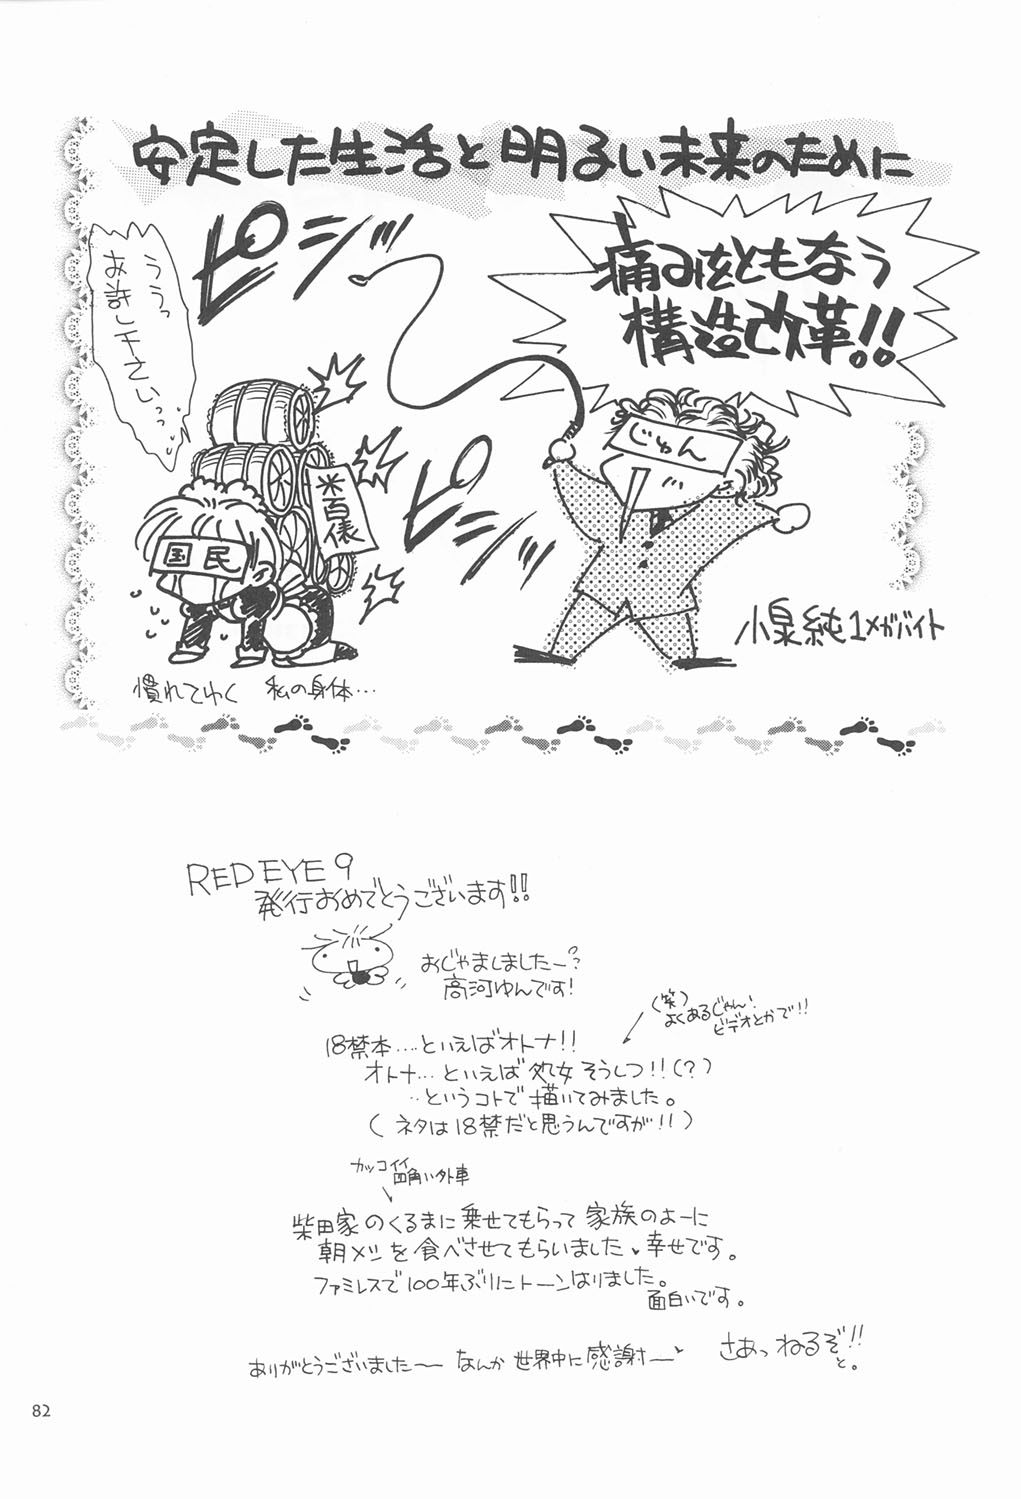 安定した生活と明るい未来のために
痛みをともなう
構造改革!!
ピシッ
ううっ
お許し下さいっ…
じゅん
米百俵
国民
ピシッ
小泉純1メガバイト
慣れてゆく 私の身体…
RED EYE 9
発行おめでとうございます!!
おじゃましましたー??
高河ゆんです!
(笑)
よくあるじゃん!
ビデオとかで!!
18禁本…といえばオトナ!!
オトナ…といえば処女そうしつ!!(?)
…というコトで描いてみました。
(ネタは18禁だと思うんですが!!)
カッコイイ
四角い外車
柴田家のくるまに乗せてもらって家族のよーに
朝メシを食べさせてもらいました♥幸せです。
ファミレスで100年ぶりにトーンはりました。
面白いです。
ありがとうございました〜〜 なんか世界中に感謝〜♥
さあっねるぞ!!
と。
82